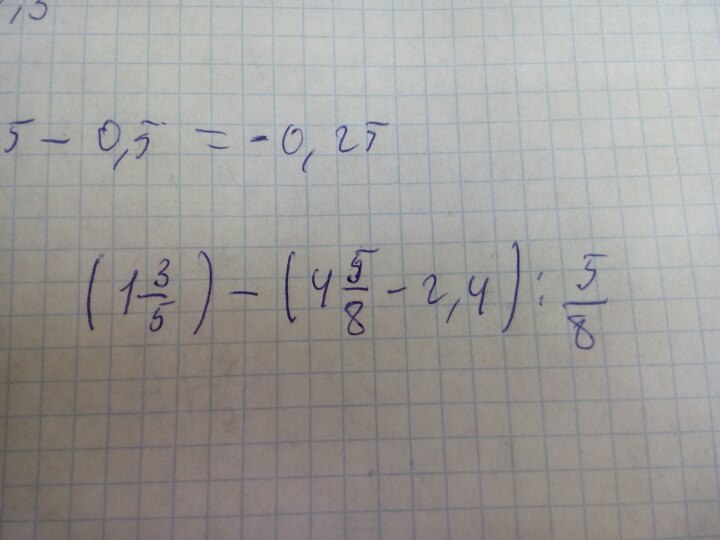 ,5
5 - 0,5 = -0,25
(1 3/5) - (4 5/8 - 2,4) : 5/8